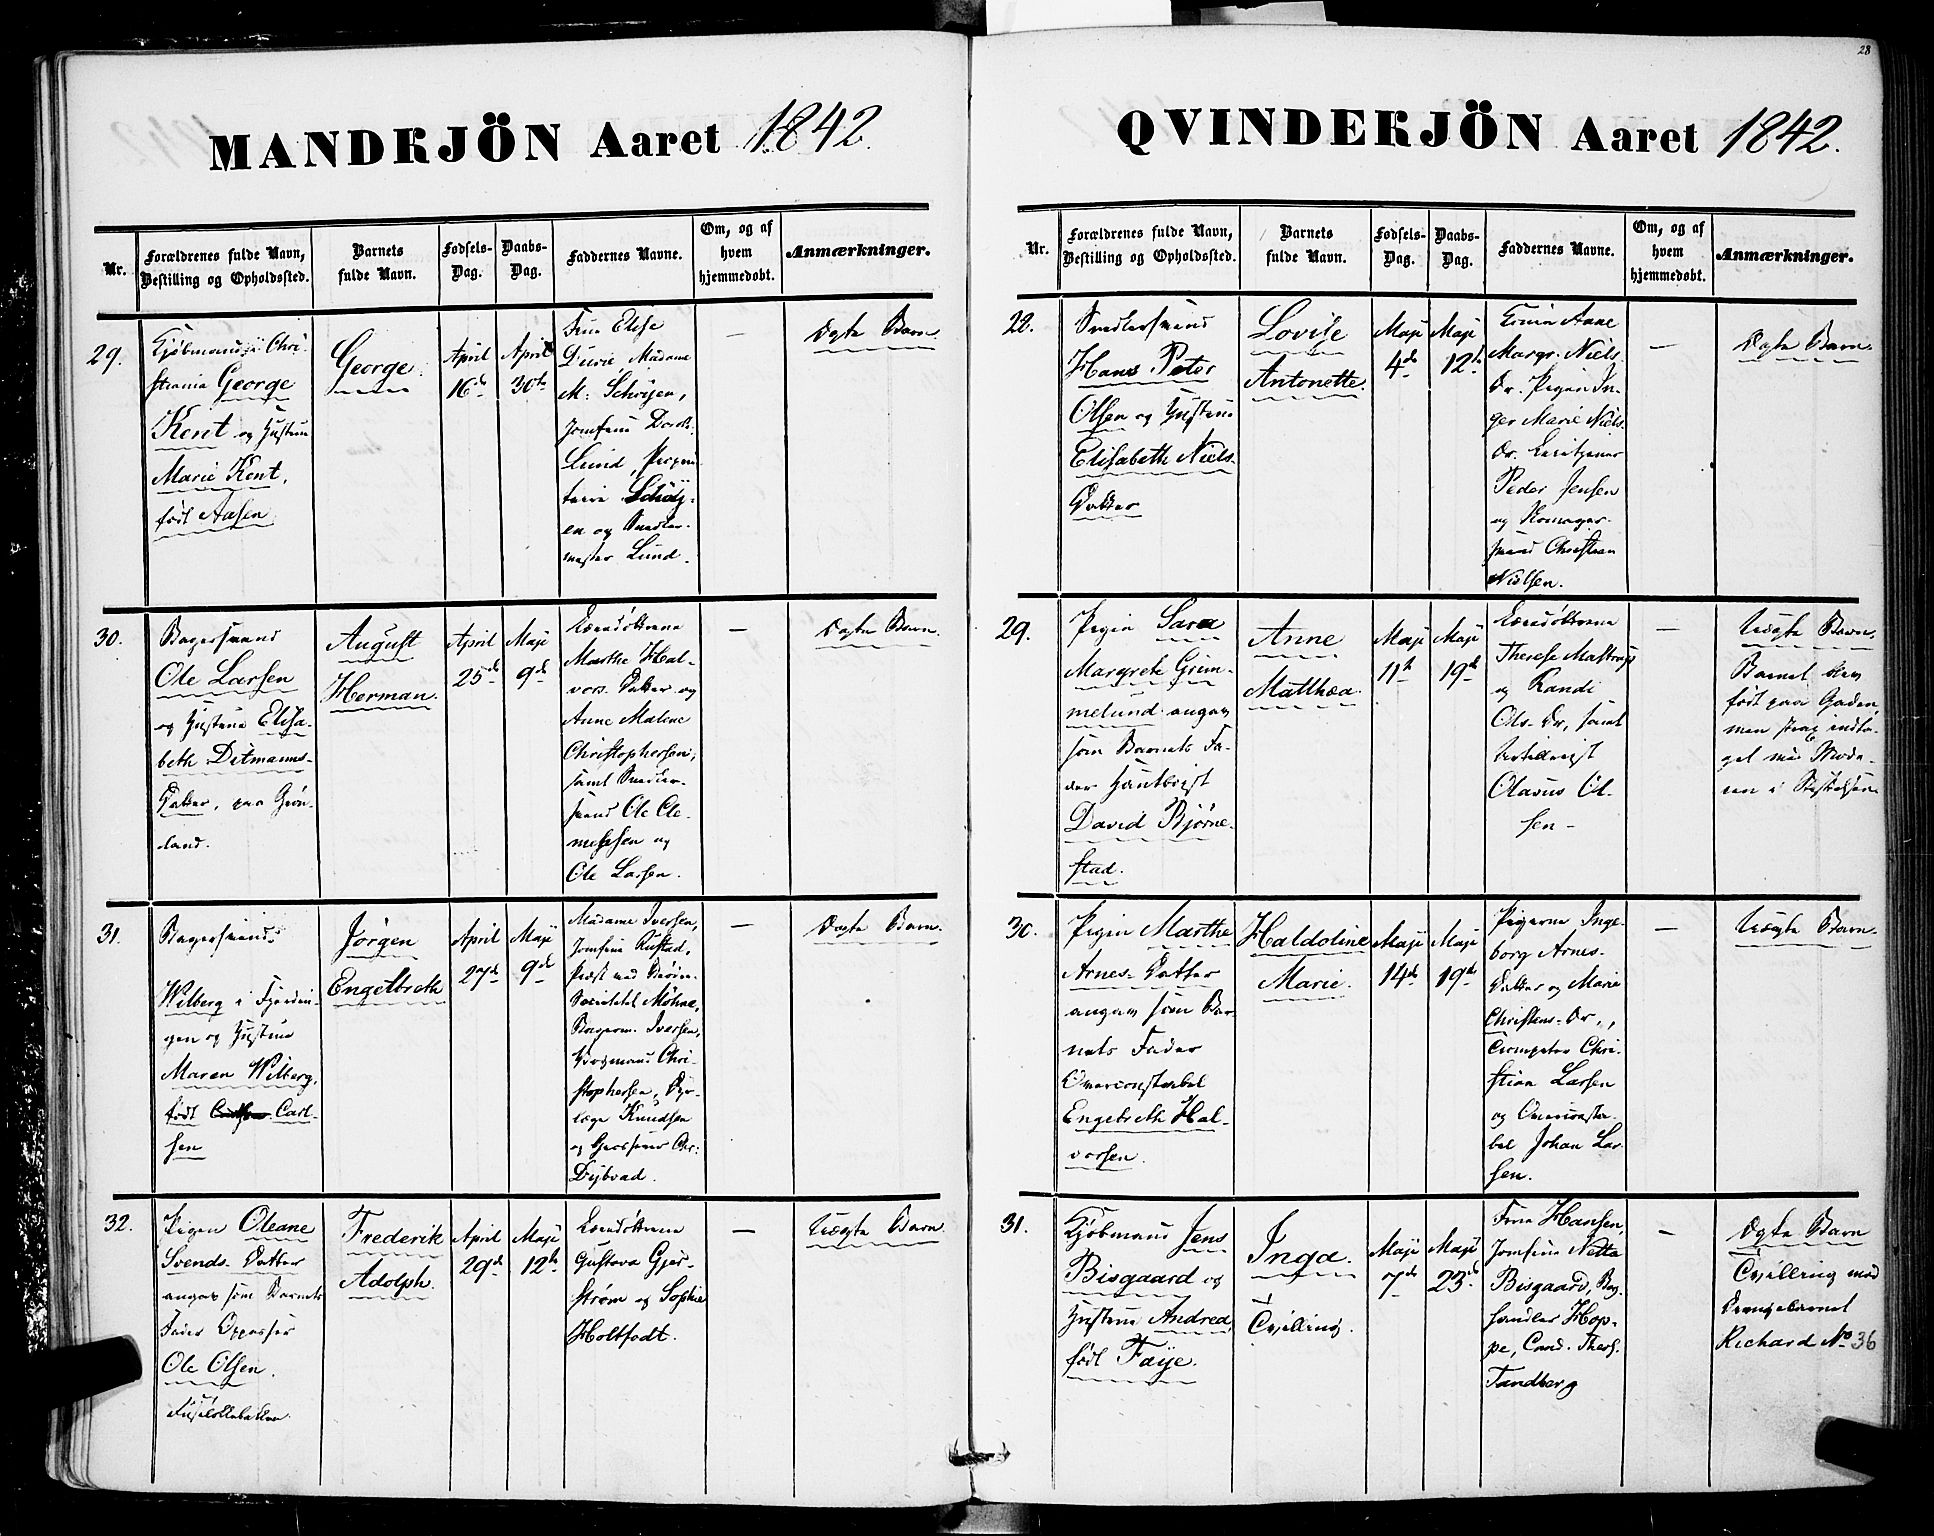 28
MANDKJÖN Aaret 1842.
Nr.
Forældrenes fulde Navn,
Bestilling og Opholdssted.
Barnets
fulde Navn.
Fødsels-
Dag.
Daabs-
Dag.
Faddernes Navne.
Om, og af
hvem
hjemmedøbt.
Anmærkninger.
29.
Kjøbmand i Chri-
stiania George
Kent og Hustru
Marie Kent,
født Aasen.
George.
April
16de
April
30te
Frue Elise
Durie, Madame
M: Schøyen,
Jomfrue Doroth.
Lund,
Schöy-
en og Snedker-
mester Lund.
—
Ægte Barn.
30.
Bagersvend
Ole Larsen
og Hustrue Elisa-
beth Ditmanns-
Datter, paa Grøn-
land.
August
Herman.
April
25de
Maji
9de
Marthe Hal-
vors-Datter og
Anne Malene
Christophersen,
samt Snedker-
svend Ole Cle-
metsen og
Ole Larsen.
—
Ægte Barn.
31.
Bagersvend
Wilberg i Fjerdin-
gen og Hustrue
Maren Wilberg,
født Carl-
sen
Jørgen
Engelbreth
April
27de
Maji
9de
Madame Iversen,
Jomfrue Rustad,
Præst ved Brødre-
Societetet Møhne,
Bagerm. Iversen,
Chri-
stophersen, Dyr-
læge Knudsen
og Chr:
Dybvad.
Ægte Barn.
32.
Pigen Oleane
Svends-Datter
angav som Barnets
Fader Oppasser
Ole Olsen.
Frederik
Adolph.
April
29de
Maji
12te
Gustava Gjer-
strøm og Sophie
Holtfodt.
—
Uægte Barn.
QVINDEKJÖN Aaret 1842.
Nr.
Forældrenes fulde Navn,
Bestilling og Opholdssted.
Barnets
fulde Navn.
Fødsels-
Dag.
Daabs-
Dag.
Faddernes Navne.
Om, og af
hvem
hjemmedøbt.
Anmærkninger.
28.
Snedkersvend
Hans Peter
Olsen og Hustrue
Elisabeth Niels-
Datter
Lovise
Antonette.
Maji
4de
Maji
12te
Konen Anne
Margr. Niels-
Dr. Pigen In-
ger Marie Niels-
Dr.
Peder Jensen
og Skomager-
svend Christian
Nielsen.
—
Ægte Barn.
29.
Pigen Sara
Margrete Grim-
melund angav
som Barnets Fa-
der Hautboist
David Bjørne-
stad.
Anne
Matthea.
Maji
11te
Maji
19de
Therese Mastrup
og Randi
Ols-Dr, samt
Artillerist
Olavus Ol-
sen -
—
Uægte Barn.
Barnet blev
født paa Gaden,
men strax indta-
get med Mode-
ren i Stiftelsen.
30.
Pigen Marthe
Arnes-Datter
angav som Bar-
nets Fader
Overconstabel
Engebreth Hal-
vorsen.
Haldoline
Marie.
Maji
14de
Maji
19de
Pigerne Inge-
borg Arnes-
Datter og Marie
Christens-Dr.,
Trompeter Chri-
stian Larsen
og Overconsta-
bel Johan Lar-
sen.
—
Uægte Barn.
31.
Kjøbmand Jens
Bisgaard og
Hustrue Andrea
født Faye.
Inga.
Tvilling.
Maji
7de
Maji
23de
Frue Hansen,
Jomfrue Netta
Bisgaard, Bog-
handler Hop-
pe, Cand. Theol.
Tandberg
—
Ægte Barn
Tvilling med
Drengebarnet
Richard No 36